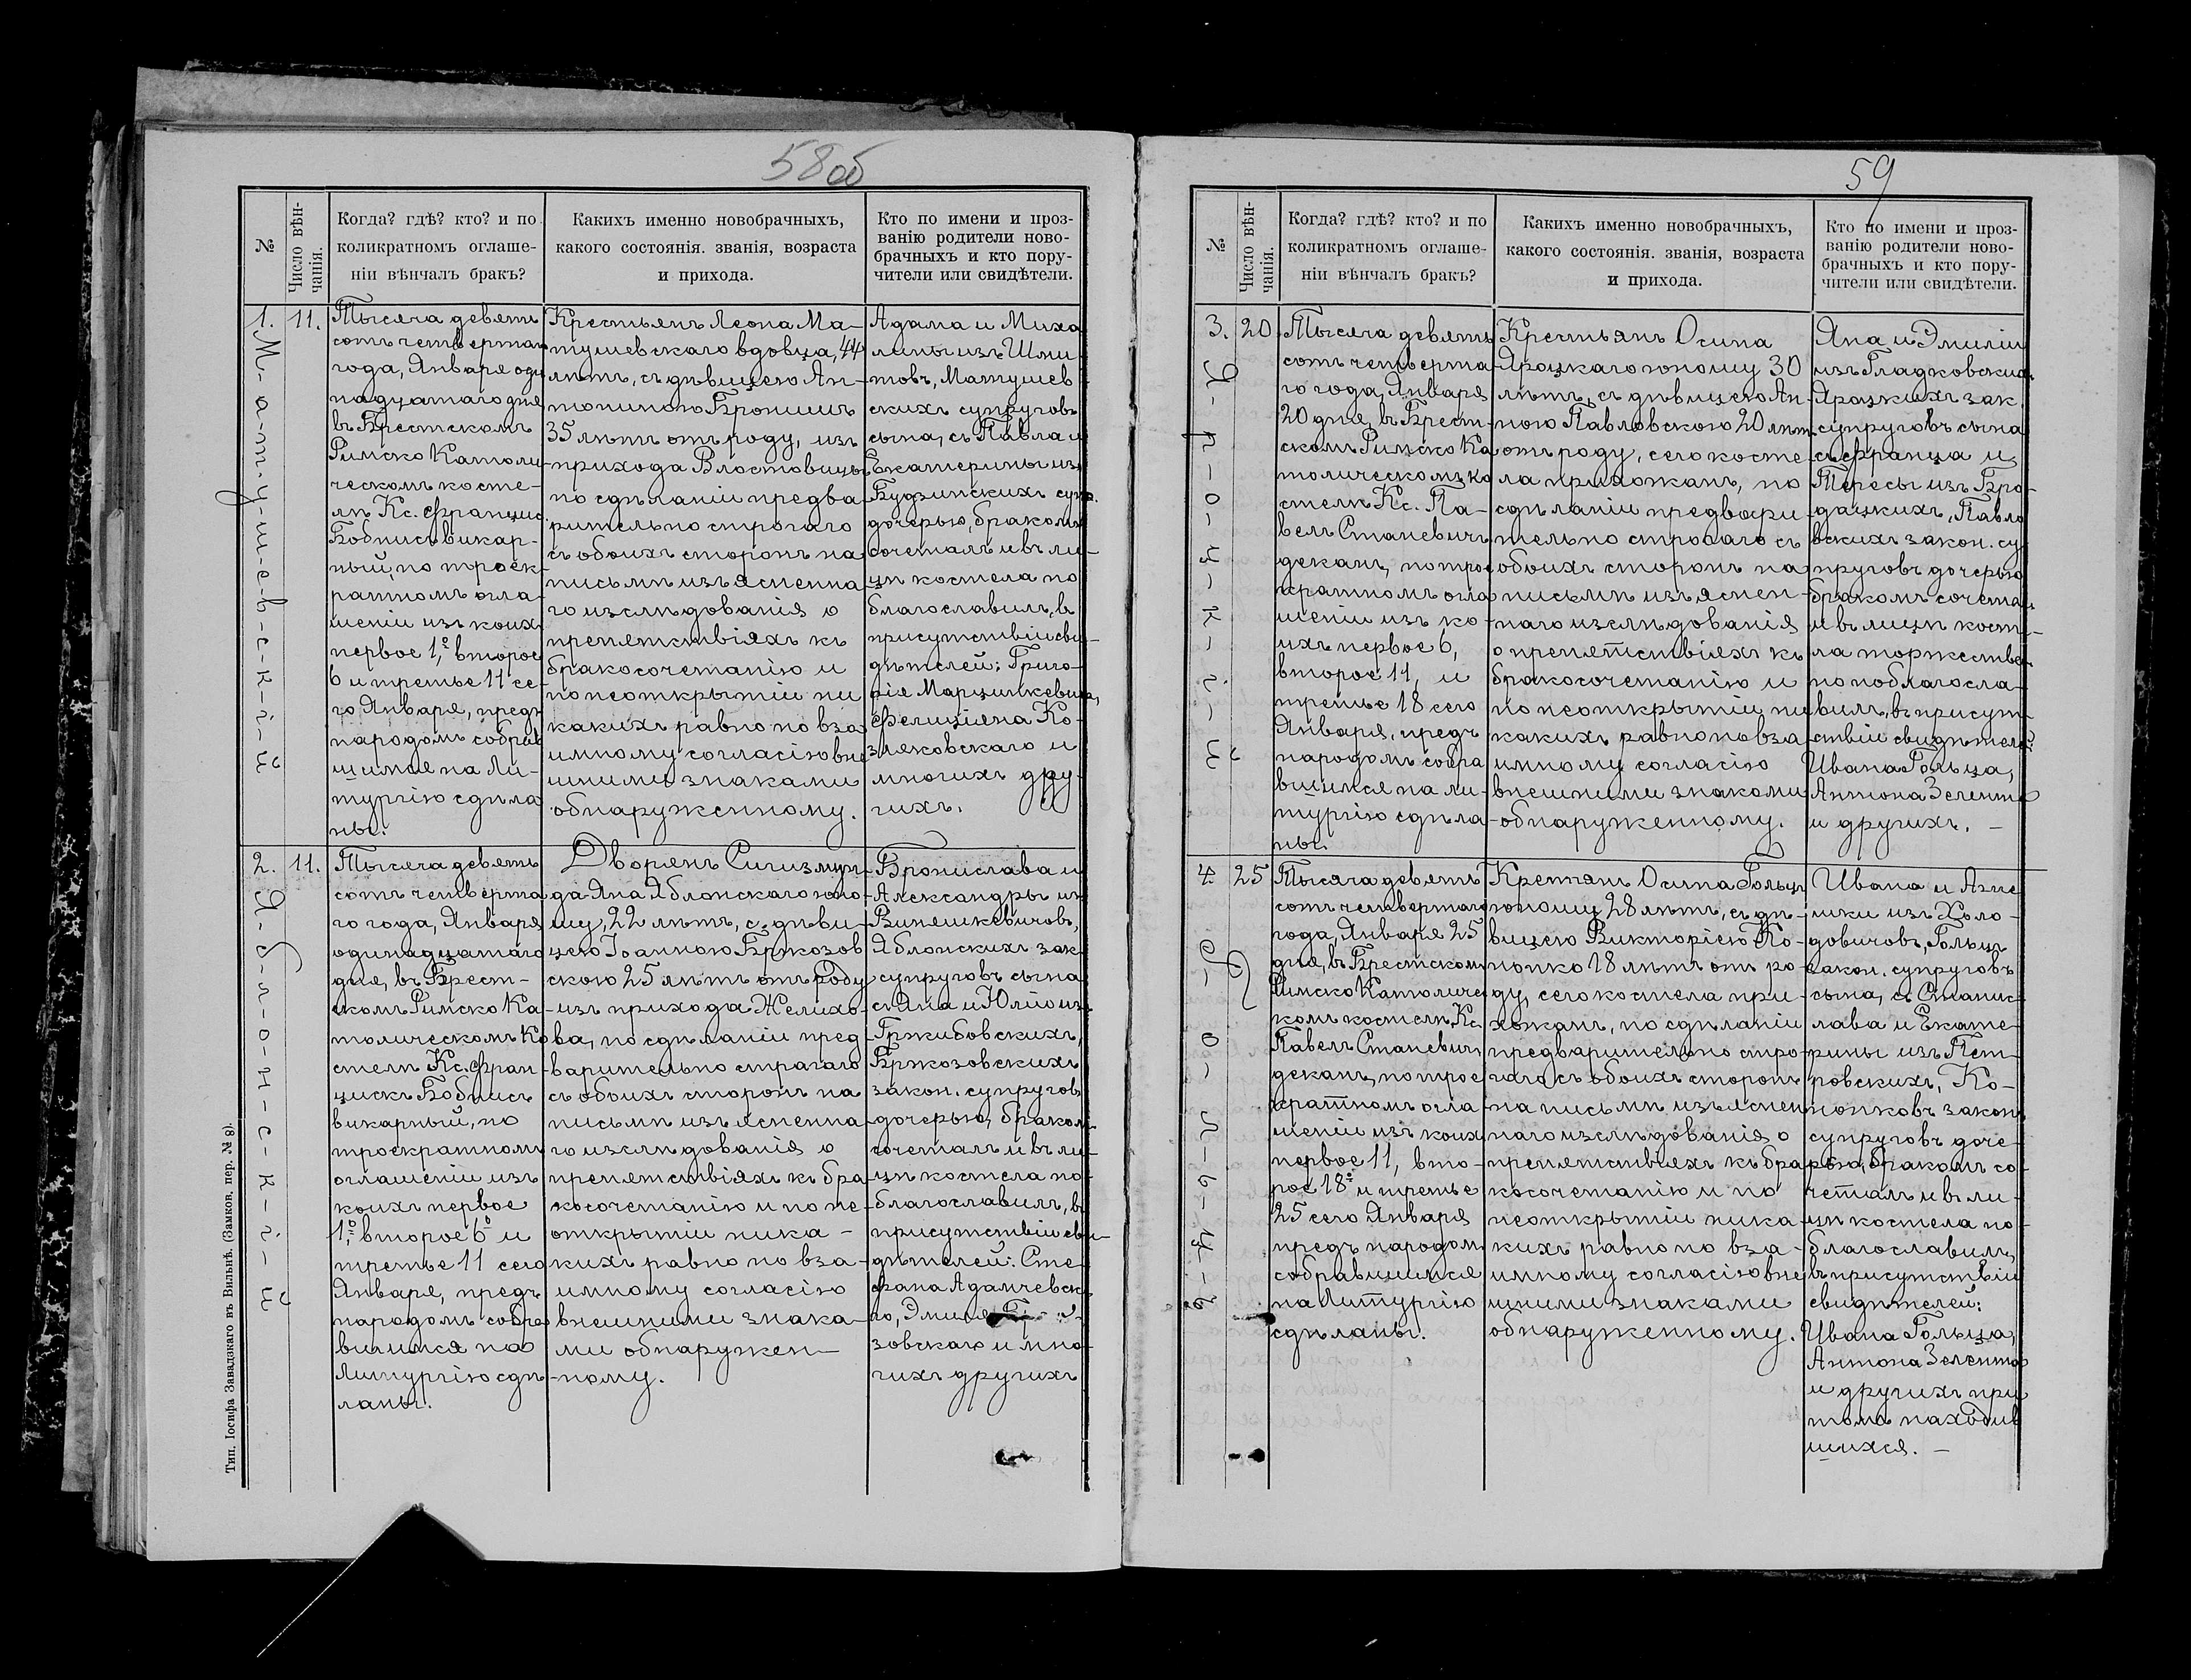 58об
№
Число вѣн-
чанія.
Когда? гдѣ? кто? и по
коликратномъ оглаше-
ніи вѣнчалъ бракъ?
Какихъ именно новобрачныхъ,
какого состоянія. званія, возраста
и прихода.
Кто по имени и проз-
ванію родители ново-
брачныхъ и кто пору-
чители или свидѣтели.
1.
М-а-т-у-ш-е-в-с-к-і-й
11.
Тысяча девять
сотъ четвертаго
года, Января оди
надцатаго дня
въ Брестскомъ
Римско Католи
ческомъ косте-
лѣ Кс. Францис.
Бобнисъ викар-
ный, по троек-
ратномъ огла-
шеніи изъ коихъ
первое 1,º второе
6 и третье 11 се-
го Января, предъ
народомъ собрав
шимся на Ли-
тургію сдѣла
ны.
Крестьянъ Леона Ма-
тушевскаго вдовца, 44
лѣтъ, съ дѣвицею Ан-
тониною Бронишъ
35 лѣтъ отъ роду, изъ
прихода Влостовицы
по сдѣланіи предва-
рительно строгаго
съ обоихъ сторонъ на
письмѣ изъясненна
го изслѣдованія о
препятствіяхъ къ
бракосочетанію и
по неоткрытіи ни
какихъ равно по вза
имному согласію внѣ
шними знаками
обнаруженному.
Адама и Миха
лины изъ Шми
товъ, Матушев
скихъ супруговъ
сына, съ Павла и
Екатерины изъ
Будзинскихъ супр.
дочерью, бракомъ
сочеталъ и въ ли-
цѣ костела по
благославилъ, въ
присутствіи сви-
дѣтелей: Григо-
рія Марцинкевича,
Фелиціяна Ко-
зляковскаго и
многихъ дру-
гихъ.
2.
Я-б-л-о-н-с-к-і-й
11.
Тысяча девять
сотъ четверта
го года, Января
одинадцатаго
дня, въ Брест-
скомъ Римско Ка-
толическомъ Ко
стелѣ Кс. Фран
цискъ Бобнисъ
викарный, по
троекратномъ
оглашеніи изъ
коихъ первое
1,º второе 6º и
третье 11 сего
Января, предъ
народомъ собра
вшимся на
Литургію сдѣ-
ланы.
Дворянъ Сигизмун-
да Яна Яблонскаго юно-
шу, 22 лѣтъ, съ дѣви-
цею Іоанною Бржозов
скою 25 лѣтъ отъ роду
изъ прихода Желихо-
ва, по сдѣланіи пред
варительно страгаго
съ обоихъ сторонъ на
письмѣ изъясненна
го изслѣдованія о
препятствіяхъ къ бра-
косочетанію и по не-
открытіи ника-
кихъ равно по вза-
имному согласію
внешними знака-
ми обнаружен-
ному.
Бронислава и
Александры изъ
Винешкевичовъ,
Яблонскихъ зак.
супруговъ сына
съ Яна и Юліи изъ
Гржибовскихъ,
Бржозовскихъ
закон. супруговъ
дочерью, бракомъ
сочеталъ и въ ли-
цѣ костела по-
благославилъ, въ
присутствіи сви-
дѣтелей: Сте-
фана Адамчевска
го,
зовскаго и мно-
гихъ другихъ
Тип. Іосифа Завадзкаго въ Вильнѣ. (Замков. пер. № 8).
59
№
Число вѣн-
чанія.
Когда? гдѣ? кто? и по
коликратномъ оглаше-
ніи вѣнчалъ бракъ?
Какихъ именно новобрачныхъ,
какого состоянія. званія, возраста
и прихода.
Кто по имени и проз-
ванію родители ново-
брачныхъ и кто пору-
чители или свидѣтели.
3.
Я-р-о-ц-к-і-й
20
Тысяча девять
сотъ четверта-
го года, Января
20 дня, въ Брест-
скомъ Римско Ка
толическомъ ко
стелѣ Кс. Па-
велъ Станевичъ
деканъ, по трое
кратномъ огла
шеніи изъ ко-
ихъ первое 6,
второе 11, и
третье 18 сего
Января, предъ
народомъ собра
вшимся на ли-
тургію сдѣла
ны.
Крестьянъ Осипа
Яроцкаго юношу 30
лѣтъ, съ дѣвицею Ан-
ною Павловскою 20 лѣтъ
отъ роду, сего косте
ла прихожанъ, по
сдѣланіи предвари-
тельно строгаго съ
обоихъ сторонъ на
письмѣ изъяснен-
наго изслѣдованія
о препятствіяхъ къ
бракосочетанію и
по неоткрытіи ни
какихъ равно по вза
имному согласію
внешними знаками
обнаруженному.
Яна и Эмиліи
изъ Гладковскихъ
Яроцкихъ зак.
супруговъ сына
съ Франца и
Тересы изъ Бро-
дацкихъ, Павло
вскихъ закон. су
пруговъ дочерью
бракомъ сочеталъ
и въ лицѣ косте-
ла торжествен
но поблагосла-
вилъ, въ присут-
ствіи свидѣтелей:
Ивана Гольца,
Антона Зелента
и другихъ. –
4.
Г-о-л-ь-ц-ъ
25
Тысяча девять
сотъ четвертаго
года, Января 25
дня, въ Брестскомъ
Римско Католичес
комъ костелѣ, Кс.
Павелъ Станевичъ
деканъ, по трое
кратномъ огла
шеніи изъ коихъ
первое 11, вто-
рое 18º и третье
25 сего Января
предъ народомъ
собравшимся
на Литургію
сдѣланы.
Крестянъ Осипа Гольцъ
юношу 28 лѣтъ, съ дѣ-
вицею Викторіею Ко-
нопко 18 лѣтъ отъ ро-
ду, сего костела при-
хожанъ, по сдѣланіи
предварительно стро-
гаго съ обоихъ сторонъ
на письмѣ изъяснен
наго изслѣдованія о
препятствіяхъ къ бра
косочетанію и по
неоткрытіи ника
кихъ равно по вза-
имному согласію вне
шними знаками
обнаруженному.
Ивана и Агне
шки изъ Холо-
довичовъ, Гольцъ
закон. супруговъ
сына, съ Станис
лава и Екате-
рины изъ Пет-
ровскихъ, Ко-
нопковъ закон.
супруговъ доче-
рью, бракомъ со-
четалъ и въ ли-
цѣ костела по-
благославилъ,
въ присутствіи
свидѣтелей:
Ивана Гольца,
Антона Зелента
и другихъ при
томъ находив
шихся. –